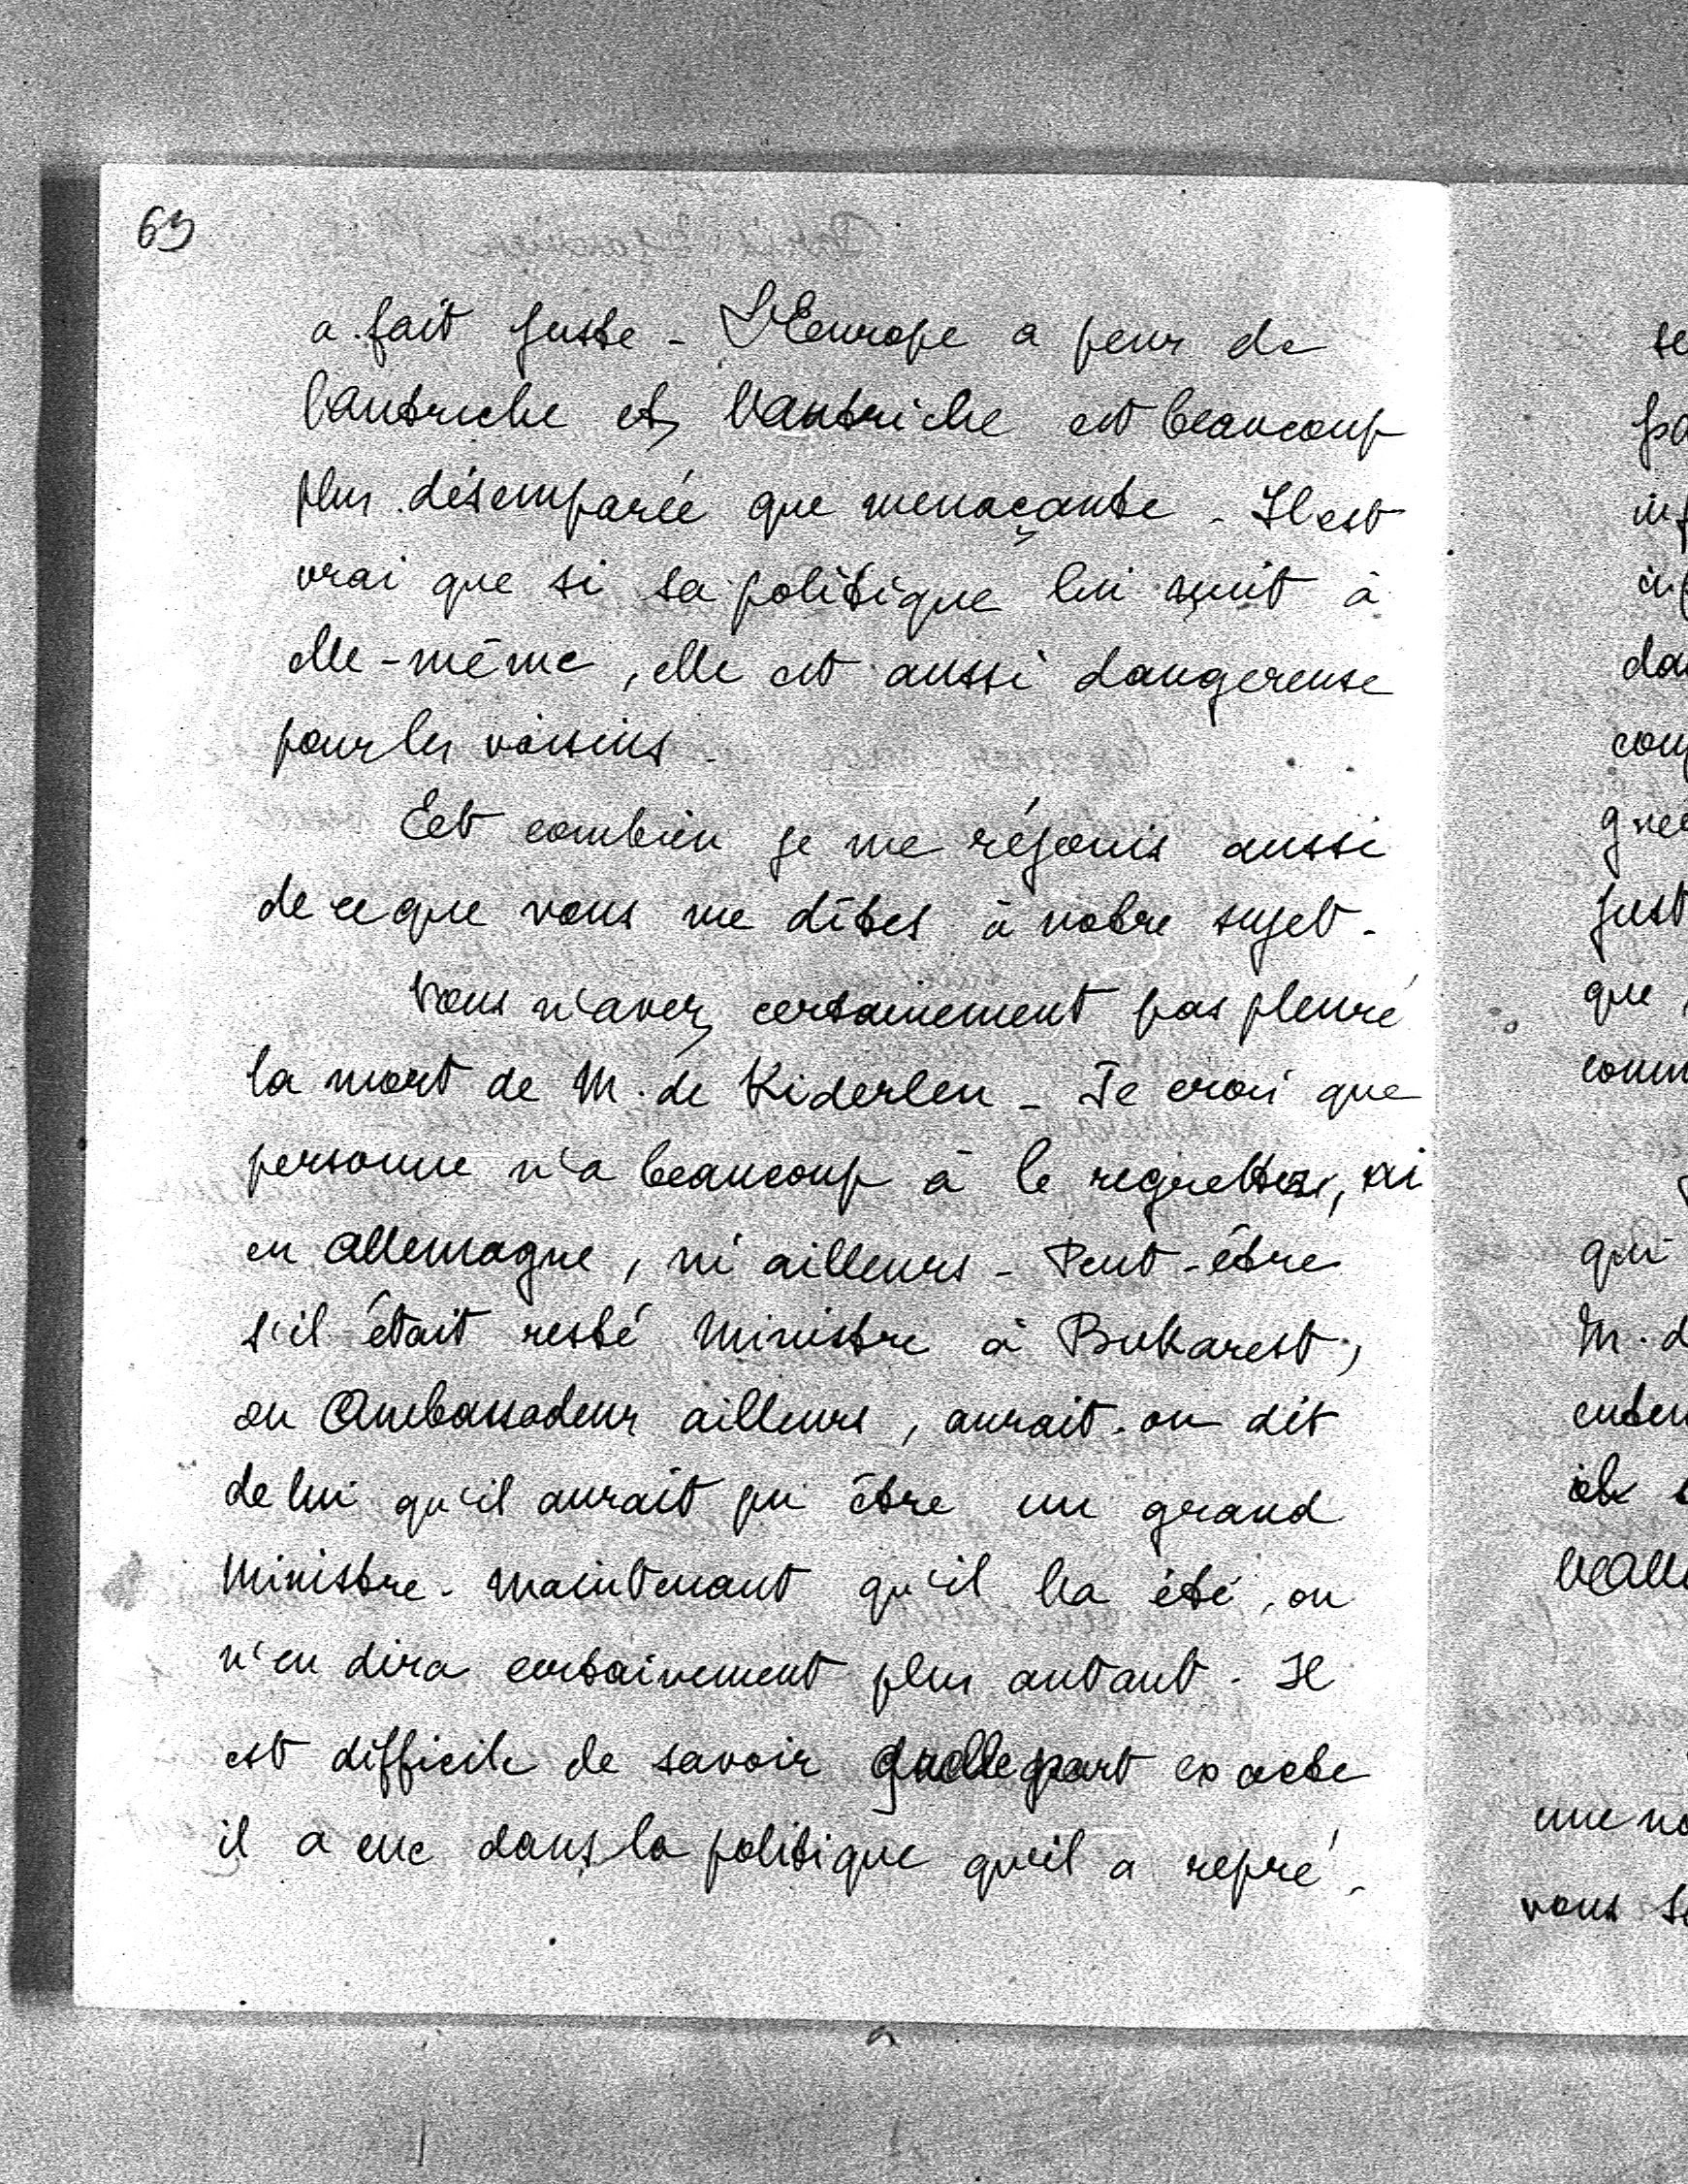 63
a fait juste - L'Europe a peur de
l'autriche et l'autriche est beaucoup
plus désemparée que menaçante - Il est
vrai que si sa politique lui nuit à
elle-même, elle est aussi dangereuse
pour les voisins -
Eet combien je me réjouis aussi
de ce que vous me dîtes à notre sujet -
Vous n'avez certainement pas pleuré
la mort de M. de Kiderlen - Je crois que
personne n'a beaucoup à le regretter, ni
en allemagne, ni ailleurs - Peut-être
s'il était resté Ministre à Bukarest,
ou Ambassadeur ailleurs, aurait-on dit
de lui qu'il aurait pu être un grand
Ministre - Maintenant qu'il l'a été, on
n'en dira certainement plus autant - Il
est difficile de savoir quelle part exacte
il a eue dans la politique qu'il a repré-